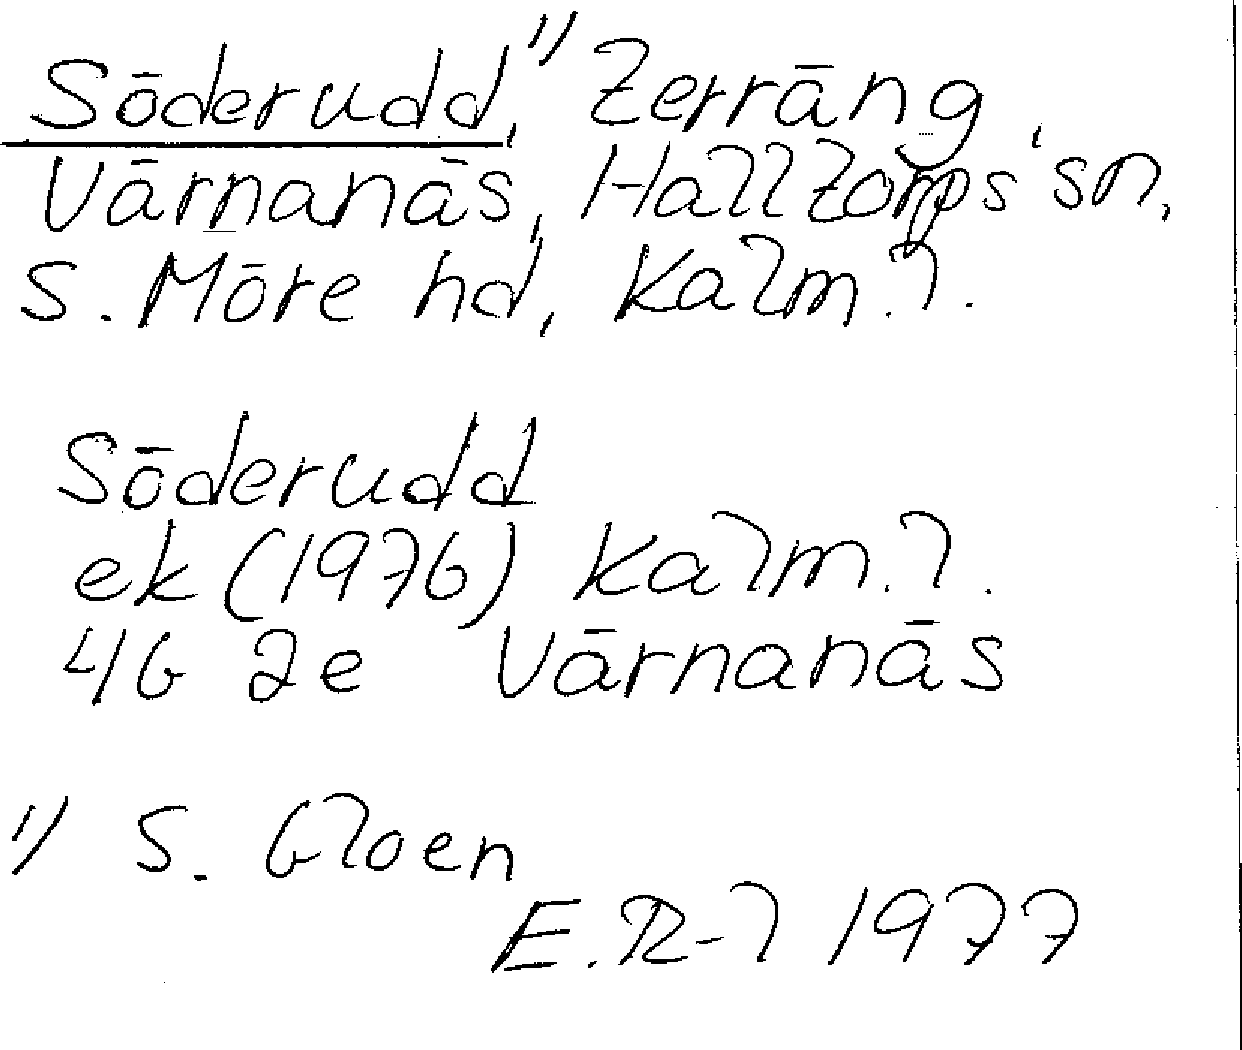 Söderudd,¹⁾ terräng
Värnanäs, Halltorps sn,
S. Möre hd, Kalm. l.
Söderudd
ek (1976) Kalm. l.
4G 2e Värnanäs
1) S. Gloen
E.R-l 1977